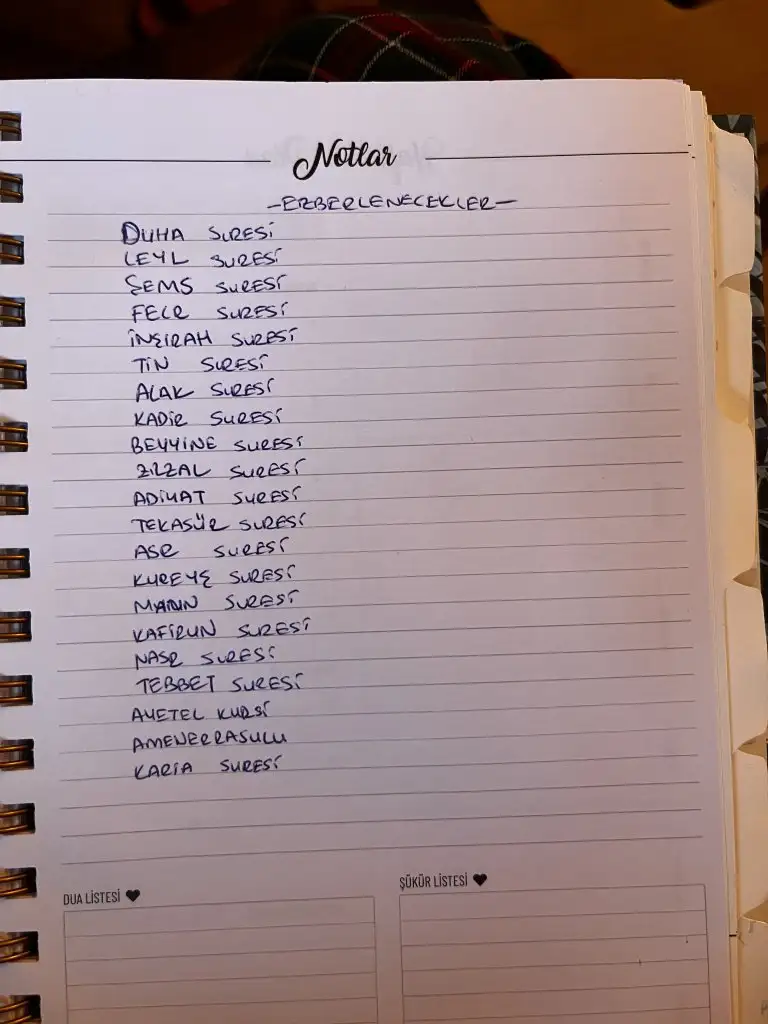 Notlar
-EZBERLENECEKLER-
DUHA SURESİ
LEYL SURESİ
ŞEMS SURESİ
FECR SURESİ
İNŞİRAH SURESİ
TİN SURESİ
ALAK SURESİ
KADİR SURESİ
BEYYİNE SURESİ
ZİLZAL SURESİ
ADİYAT SURESİ
TEKASÜR SURESİ
ASR SURESİ
KUREYŞ SURESİ
MAUN SURESİ
KAFİRUN SURESİ
NASR SURESİ
TEBBET SURESİ
AYETEL KURSİ
AMENERRASULU
KARİA SURESİ
DUA LİSTESİ ♥
ŞÜKÜR LİSTESİ ♥